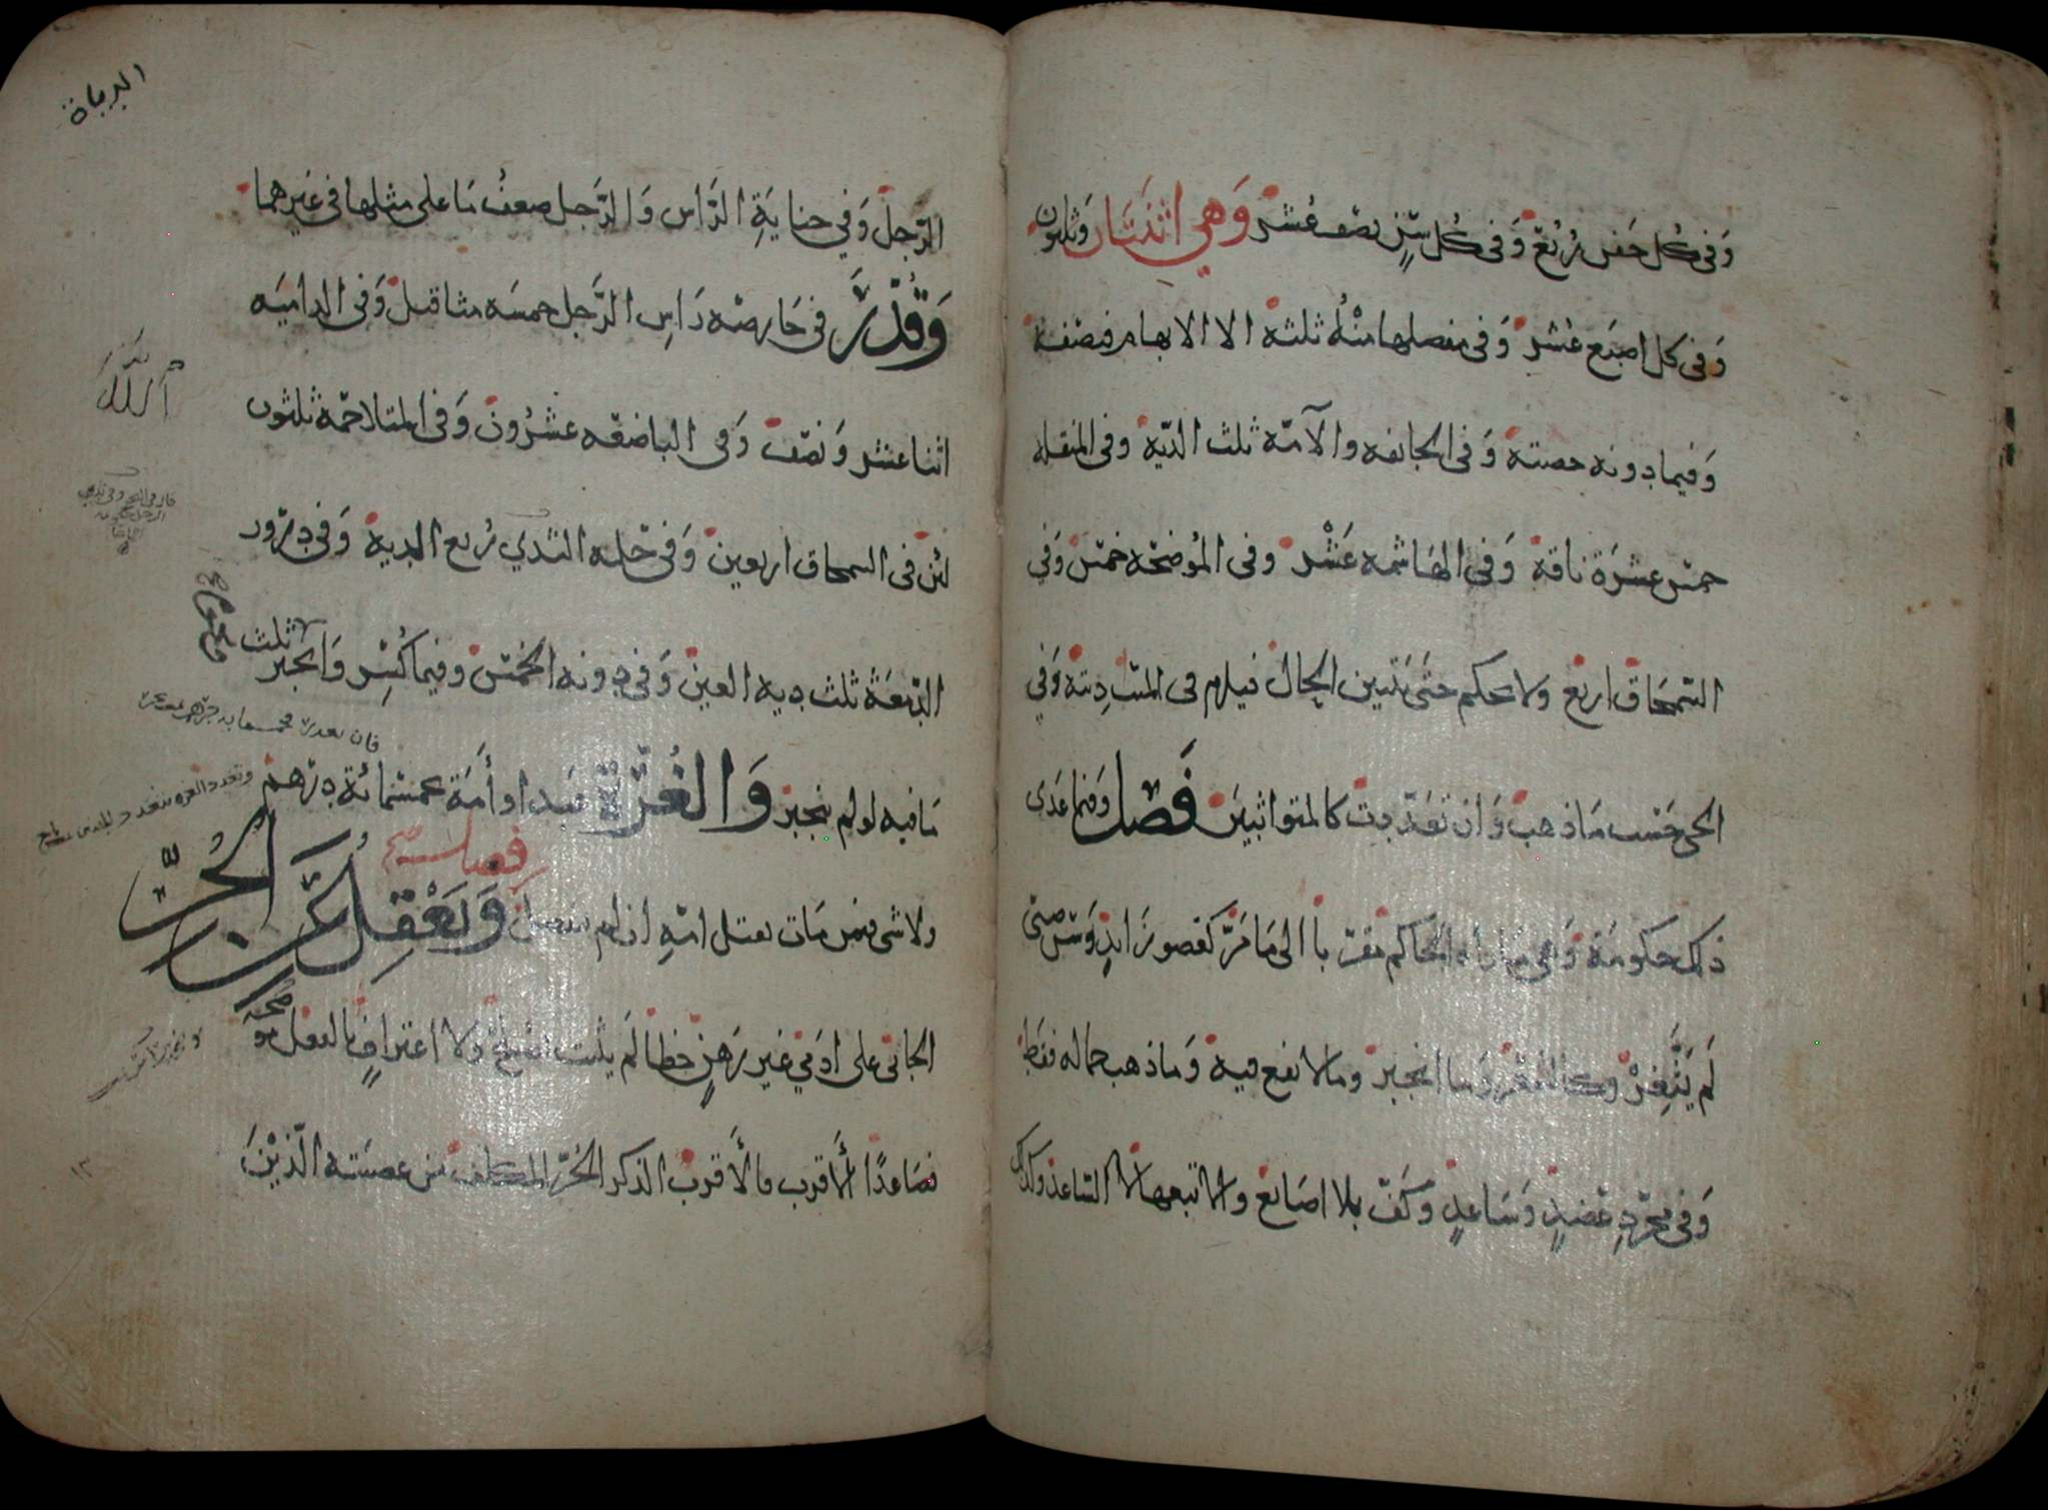 وَفى كُل جَفن رُبُع وَفى كُل سِنٍّ نصف عُشر وَهي اثنتان وثلثون
وَفى كل اصبَع عُشر وَفى مفصلها منْهُ ثلثه الا الابهام فنصفه
وَفيما دونه حصته وَفى الجائفه والآمّه ثلث الدّيه وفى المنقله
خمس عشرَة ناقة وَفى الهَاشمه عَشْر وفى المُوضحَه خمس وَفي
السّمحَاق اربَع ولا يحكم حتى يتبين الحال فيلزم فى الميّت دِيته وَفي
الحى حَسب مَا ذهب وَان تعَدّدت كالمتواثبين فَصل وَفيما عَدى
ذلك حكومَة وَهي مَا راه الحَاكم مقرّبا الى مَا مَرَّ كعضو زَايدٍ وَسن صبى
لَم يَثّغِرْ وفى الشعر وَما انجبر وما لا نفع فيه وَمَا ذهب جماله فقط
وَفى مجرّدِ عَضدٍ وَسَاعدٍ وَكَفّ بلا اصَابع ولا تتبعها الا السّاعد وكذلك
الديات
الرّجل وَفي جنايَةِ الرَّاس وَالرَّجل ضعفُ مَا على مثلها فى غيرهما
وَقُدّرَ فى حَارصَه رَاسِ الرَّجل خمسَه مثاقيل وَفى الداميَه
اثنا عشر وَنصف وَفى الباضعَه عشرُون وَفى المتلاحمَة ثلثون
لئن فى السمحاق اربعين وَفى حَلمه الثدي رُبع الديه وَفى درور
الدّمعَة ثلث ديه العين وَفى دونه الخمس وفيما كُسِر وَانجبر ثلث
مَا فيه لو لم ينجبر وَالغُرّة عَبد او أَمَة بخمسمائة درهم
فصل
ولا شى فيمن مَات بقتل امّهِ ان لم ينفصل وَيَعْقِل عَن الحُرّ
الجانى على ادَمي غير رَهنٍ خطأ لَم يثبت بصُلح وَلا اعترافٍ بالفعل مُوضحَه
فصَاعدًا الأقرب فالأقرب الذكر الحُرّ المكلف من عصبَته الّذينَ